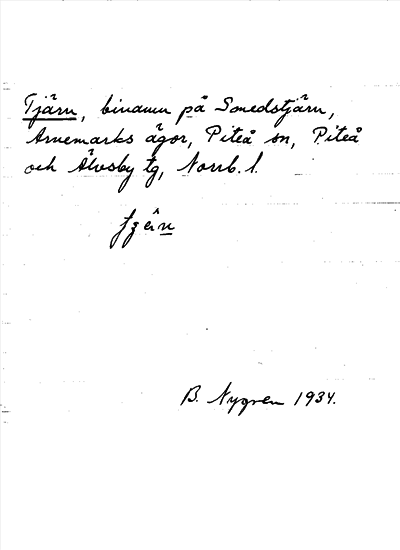 Tjärn, binamn på Smedstjärn,
Arnemarks ägor, Piteå sn, Piteå
och Älvsby tg, Norrb. l.
B. Nygren 1934.